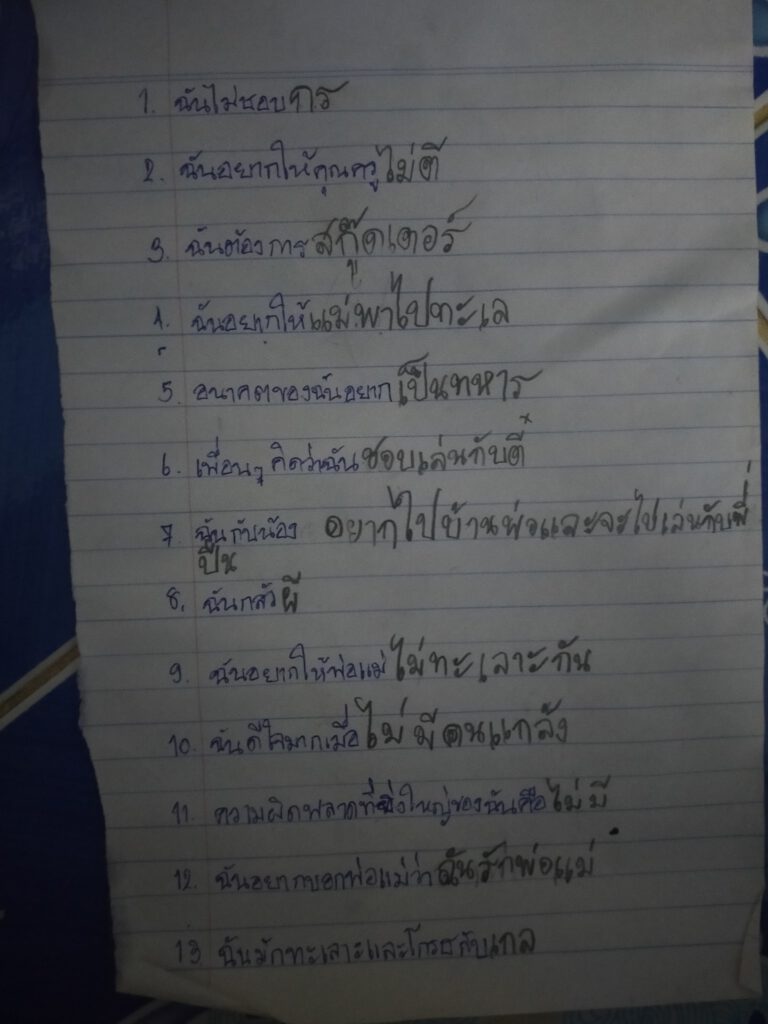 1. ฉันไม่ชอบกร
2. ฉันอยากให้คุณครูไม่ตี
3. ฉันต้องการสกู๊ดเตอร์
4. ฉันอยากให้แม่พาไปทะเล
5. อนาคตของฉันอยากเป็นทหาร
6. เพื่อนๆ คิดว่าฉันชอบเล่นกับตี๋
7. ฉันกับน้อง อยากไปบ้านพ่อและจะไปเล่นกับพี่
ปืน
8. ฉันกลัวผี
9. ฉันอยากให้พ่อแม่ไม่ทะเลาะกัน
10. ฉันดีใจมากเมื่อไม่มีคนแกล้ง
11. ความผิดพลาดที่ยิ่งใหญ่ของฉันคือไม่มี
12. ฉันอยากบอกพ่อแม่ว่าฉันรักพ่อแม่
13 ฉันมักทะเลาะและโกรธกับเกล